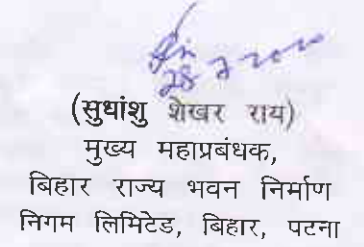 28
(सुधांशु शेखर राय)
मुख्य महाप्रबंधक,
बिहार राज्य भवन निर्माण
निगम लिमिटेड, बिहार, पटना